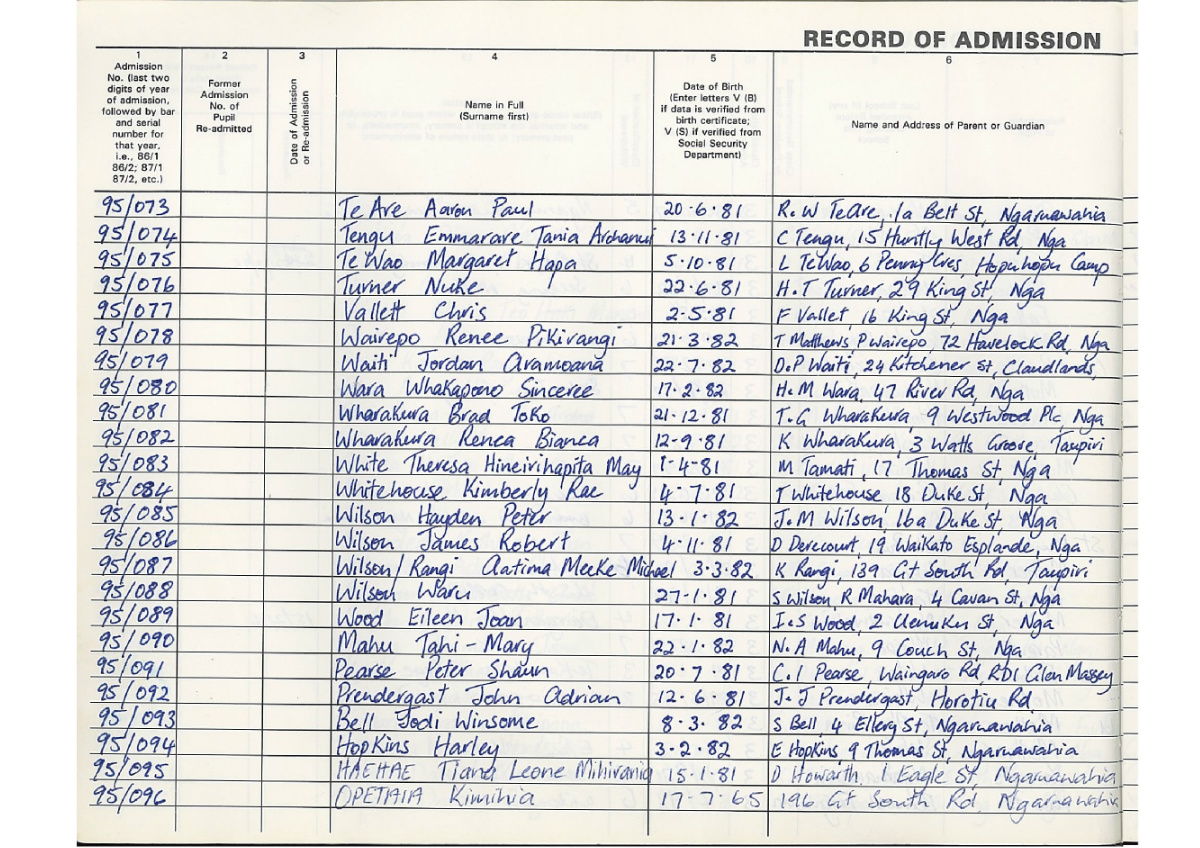 RECORD OF ADMISSION
1 2 3 4 5 6
Admission No. (last two digits of year of admission, followed by bar and serial number for that year, i.e., 86/1 86/2; 87/1 87/2, etc.)
Former Admission No. of Pupil Re-admitted
Date of Admission or Re-admission
Name in Full (Surname first)
Date of Birth (Enter letters V (B) if data is verified from birth certificate; V (S) if verified from Social Security Department)
Name and Address of Parent or Guardian
95/073 Te Are Aaron Paul 20·6·81 R.W TeAre, 1a Belt St, Ngaruawahia
95/074 Tengu Emmarare Tania 13·11·81 C Tengu, 15 Huntly West Rd, Nga
95/075 Te Wao Margaret Hapa 5·10·81 L TeWao, 6 Penny Cres, Hopuhopu Camp
95/076 Turner Nuke 22·6·81 H.T Turner, 29 King St, Nga
95/077 Vallett Chris 2-5·81 F Vallet, 16 King St, Nga
95/078 Wairepo Renee Pikirangi 21·3·82 T Matthews P Wairepo, 72 Havelock Rd, Nga
95/079 Waiti Jordan Aramoana 22·7·82 D.P Waiti, 24 Kitchener St, Claudlands,
95/080 Wara Whakapono Sinceree 17·2·82 H.M Wara, 47 River Rd, Nga
95/081 Wharakura Brad Toko 21·12·81 T.G Wharakura, 9 Westwood Plc, Nga
95/082 Wharakura Renea Bianca 12-9·81 K Wharakura, 3 Watts Groove, Taupiri
95/083 White Theresa Hineirihapita May 1-4-81 M Tamati, 17 Thomas St, Nga
95/084 Whitehouse Kimberly Rae 4·7·81 T Whitehouse 18 Duke St, Nga
95/085 Wilson Hayden Peter 13·1·82 J.M Wilson, 16a Duke St, Nga
95/086 Wilson James Robert 4·11·81 D Derecourt, 19 Waikato Esplande, Nga
95/087 Wilson/Rangi Aatima Meeke Michael 3·3·82 K Rangi, 139 Gt South Rd, Taupiri
95/088 Wilson Waru 27-1·81 S Wilson, R Mahara, 4 Cavan St, Nga
95/089 Wood Eileen Joan 17·1·81 I.S Wood, 2 Uenuku St, Nga
95/090 Mahu Tahi-Mary 22·1·82 N.A Mahu, 9 Couch St, Nga
95/091 Pearse Peter Shaun 20·7·81 C.I Pearse, Waingaro Rd, RD1 Glen Massey
95/092 Prendergast John Adrian 12·6·81 J.J Prendergast, Horotiu Rd
95/093 Bell Jodi Winsome 8·3·82 S Bell, 4 Ellery St, Ngaruawahia
95/094 Hopkins Harley 3·2·82 E Hopkins 9 Thomas St, Ngaruawahia
95/095 HAEHAE Tiana Leone 15·1·81 D Howarth, 1 Eagle St, Ngaruawahia
95/096 OPETAIA Kimihia 17-7·65 196 Gt South Rd, Ngaruawahia